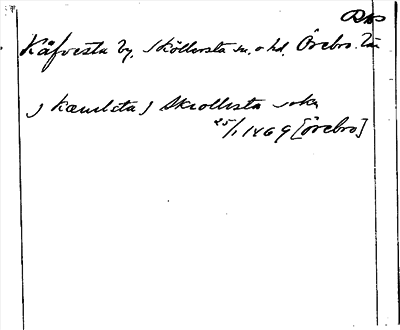 DAO
Käfvesta by, Sköllersta sn. o hd. Örebro län
J Kæuilsta J Skiollesta sokn
25/1 1469 [Örebro]